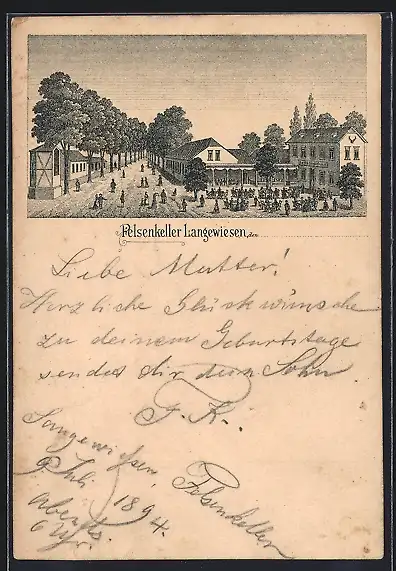 Felsenkeller Langewiesen, den
Liebe Mutter!
Herzliche Glückwünsche
zu deinem Geburtstage
sendet dir dein Sohn
F. K.
Langewiesen,
9 Juli 1894.
abends
6 Uhr.
Felsenkeller